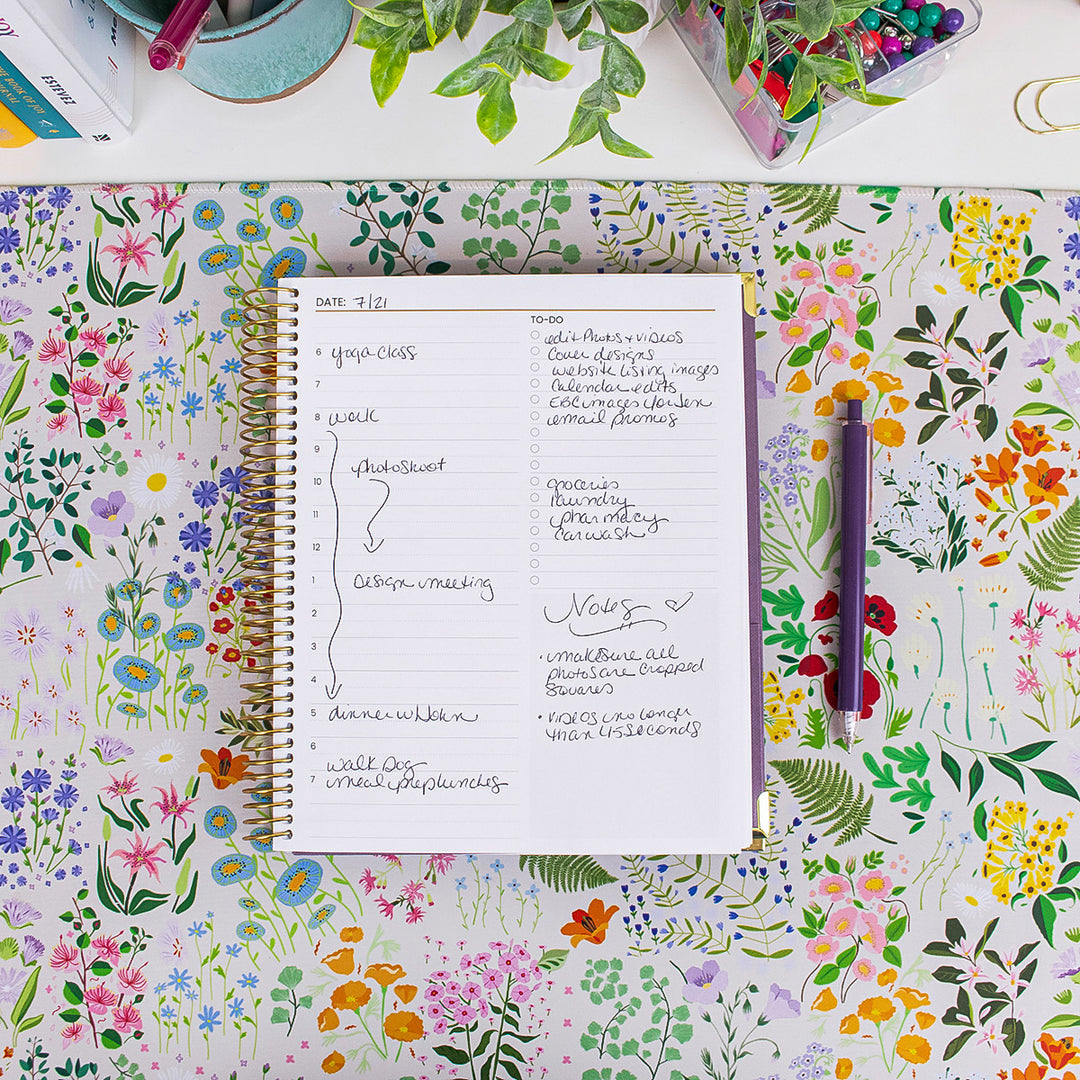 JOY
THE BOOK OF JOY
ESTEVEZ
N
DATE: 7/21
6 yoga class
7
8 walk
9
photoshoot
10
11
12
1 Design meeting
2
3
4
5 dinner w/
6
walk Dog
7 meal prep lunches
TO-DO
edit Photos + videos
Cover designs
website listing images
Calendar edits
images for Jen
email promos
groceries
laundry
pharmacy
car wash
Notes
• make sure all
photos are cropped
squares
• videos no longer
than 45 seconds